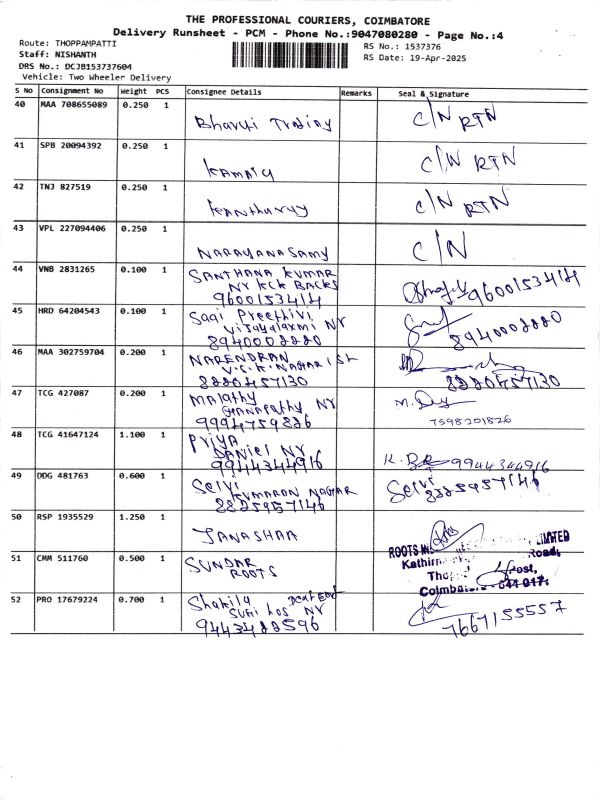 THE PROFESSIONAL COURIERS, COIMBATORE
Delivery Runsheet - PCM - Phone No.:9047080280 - Page No.:4
Route: THOPPAMPATTI
RS No.: 1537376
Staff: NISHANTH
RS Date: 19-Apr-2025
DRS No.: DCJB153737604
Vehicle: Two Wheeler Delivery
S No Consignment No Weight PCS Consignee Details Remarks Seal & Signature
40 MAA 708655089 0.250 1
Trading C/N RTN
41 SPB 20094392 0.250 1
C/N RTN
42 TNJ 827519 0.250 1
C/N RTN
43 VPL 227094406 0.250 1
NARAYANASAMY C/N
44 VNB 2831265 0.100 1 SANTHANA KUMAR
NY KCK BACKS
9600153414 9600153414
45 HRD 64204543 0.100 1 Saai Preethivi
Vijayalaxmi NY
8940002220 8940002220
46 MAA 302759704 0.200 1 NARENDRAN
V.S.K. NAGAR I St
8220457130 8220457130
47 TCG 427087 0.200 1 Malathy
Ganapathy NY
9994759226 7598201826
48 TCG 41647124 1.100 1 Priya
DANIEL NY
9944344916 9944344916
49 DDG 481763 0.600 1 Selvi Selvi
KUMARAN NAGAR
8225957146 8225957146
50 RSP 1935529 1.250 1
JANASHAA
51 CMM 511760 0.500 1 SUNDAR
ROOTS
ROOTS LIMITED
Road,
Post,
641 017.
52 PRO 17679224 0.700 1 Shakila
NY
9443422596 7667155557